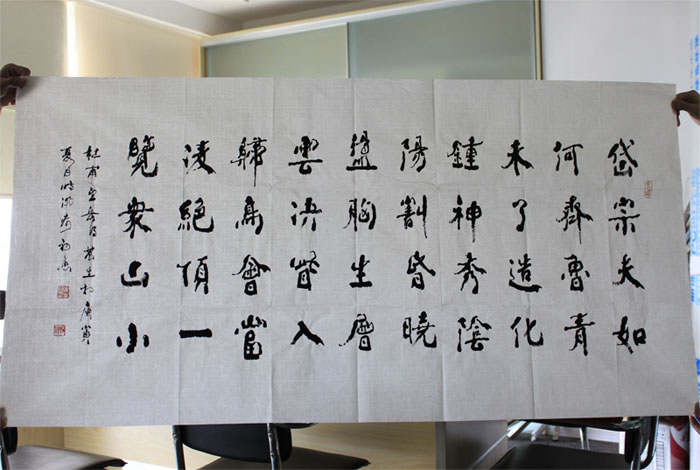 岱宗夫如
河齊魯青
未了造化
鍾神秀陰
陽割昏曉
盪胸生層
雲決眥入
歸鳥會當
淩絕頂一
覽衆山小
杜甫望岳